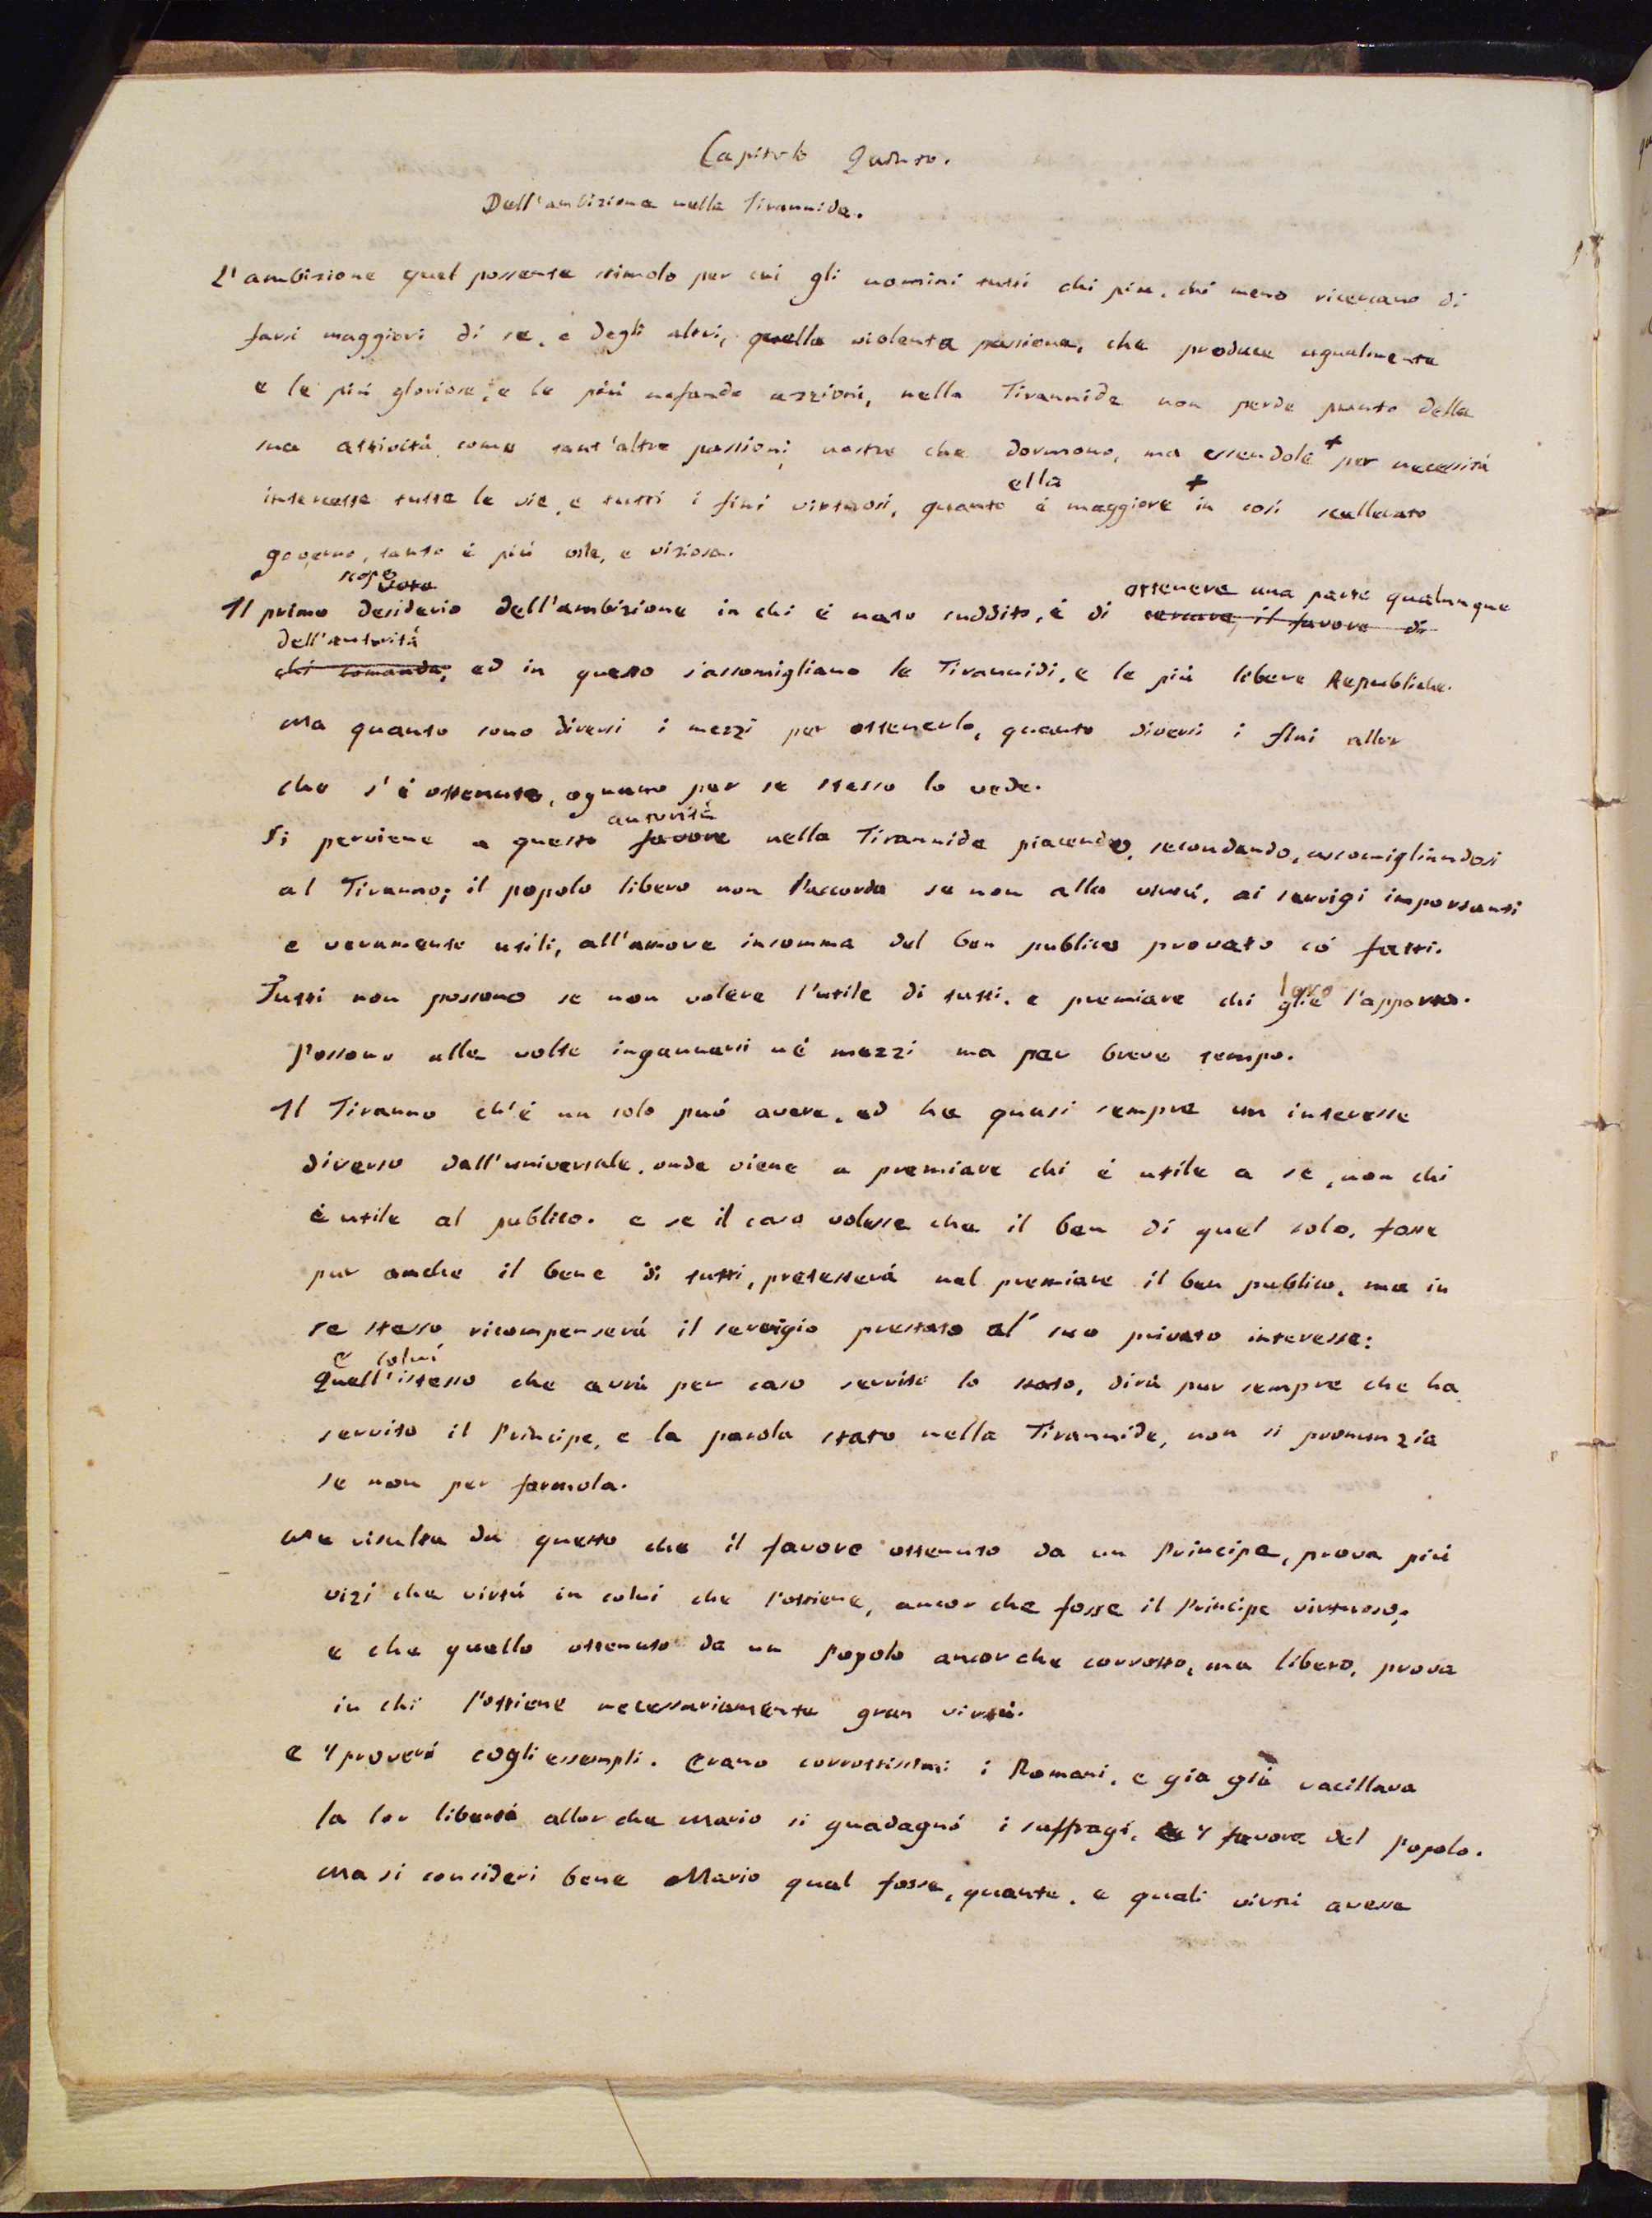 Capitolo Quinto.
Dell'ambizione nella Tirannide.
L'ambizione quel possente stimolo per cui gli uomini tutti chi piu, chi meno ricercano di
farsi maggiori di se, e degli altri, quella violenta passione, che produce egualmente
e le più gloriose, e le più nefande azzioni, nella Tirannide non perde punto della
sua attività come tant'altre passioni nostre che dormono, ma essendole + per necessità
ella +
intercette tutte le vie, e tutti i fini virtuosi, quanto è maggiore in così scellerato
governo, tanto è più vile, e viziosa.
scopo voto ottenere una parte qualunque
Il primo desiderio dell'ambizione in chi è nato suddito, è di cercare il favore di
dell'autorità
chi comanda; ed in questo s'assomigliano le Tirannidi, e le più libere Republiche.
Ma quanto sono diversi i mezzi per ottenerlo, quanto diversi i fini allor
che s'è ottenuto, ognuno per se stesso lo vede.
autorità
Si perviene a questo favore nella Tirannide piacendo, secondando, assomigliandosi
al Tiranno; il popolo libero non l'accorda se non alla virtù, ai servigi importanti
e veramente utili, all'amore insomma del ben publico provato co' fatti.
loro
Tutti non possono se non volere l'utile di tutti, e premiare chi glie l'apporta.
Possono alle volte ingannarsi nè mezzi ma per breve tempo.
Il Tiranno ch'è un solo può avere, ed ha quasi sempre un interesse
diverso dall'universale, onde viene a premiare chi è utile a se, non chi
è utile al publico. e se il caso volesse che il ben di quel solo, fosse
pur anche il bene di tutti, protesterà nel premiare il ben publico, ma in
se stesso ricompenserà il servigio prestato al suo privato interesse:
e colui
Quell'istesso che avrà per caso servito lo stato, dirà pur sempre che ha
servito il Principe, e la parola stato nella Tirannide, non si pronunzia
se non per formola.
Ma risulta da questo che il favore ottenuto da un Principe, prova più
vizi che virtù in colui che l'ottiene, ancor che fosse il Principe virtuoso,
e che quello ottenuto da un Popolo ancorche corrotto, ma libero, prova
in chi l'ottiene necessariamente gran virtù.
e il proverò cogli essempli. Erano corrottissimi i Romani, e gia già vacillava
la lor libertà allor che Mario si guadagnó i suffragi, il favore del Popolo.
Ma si consideri bene Mario qual fosse, quante, e quali virtù avesse